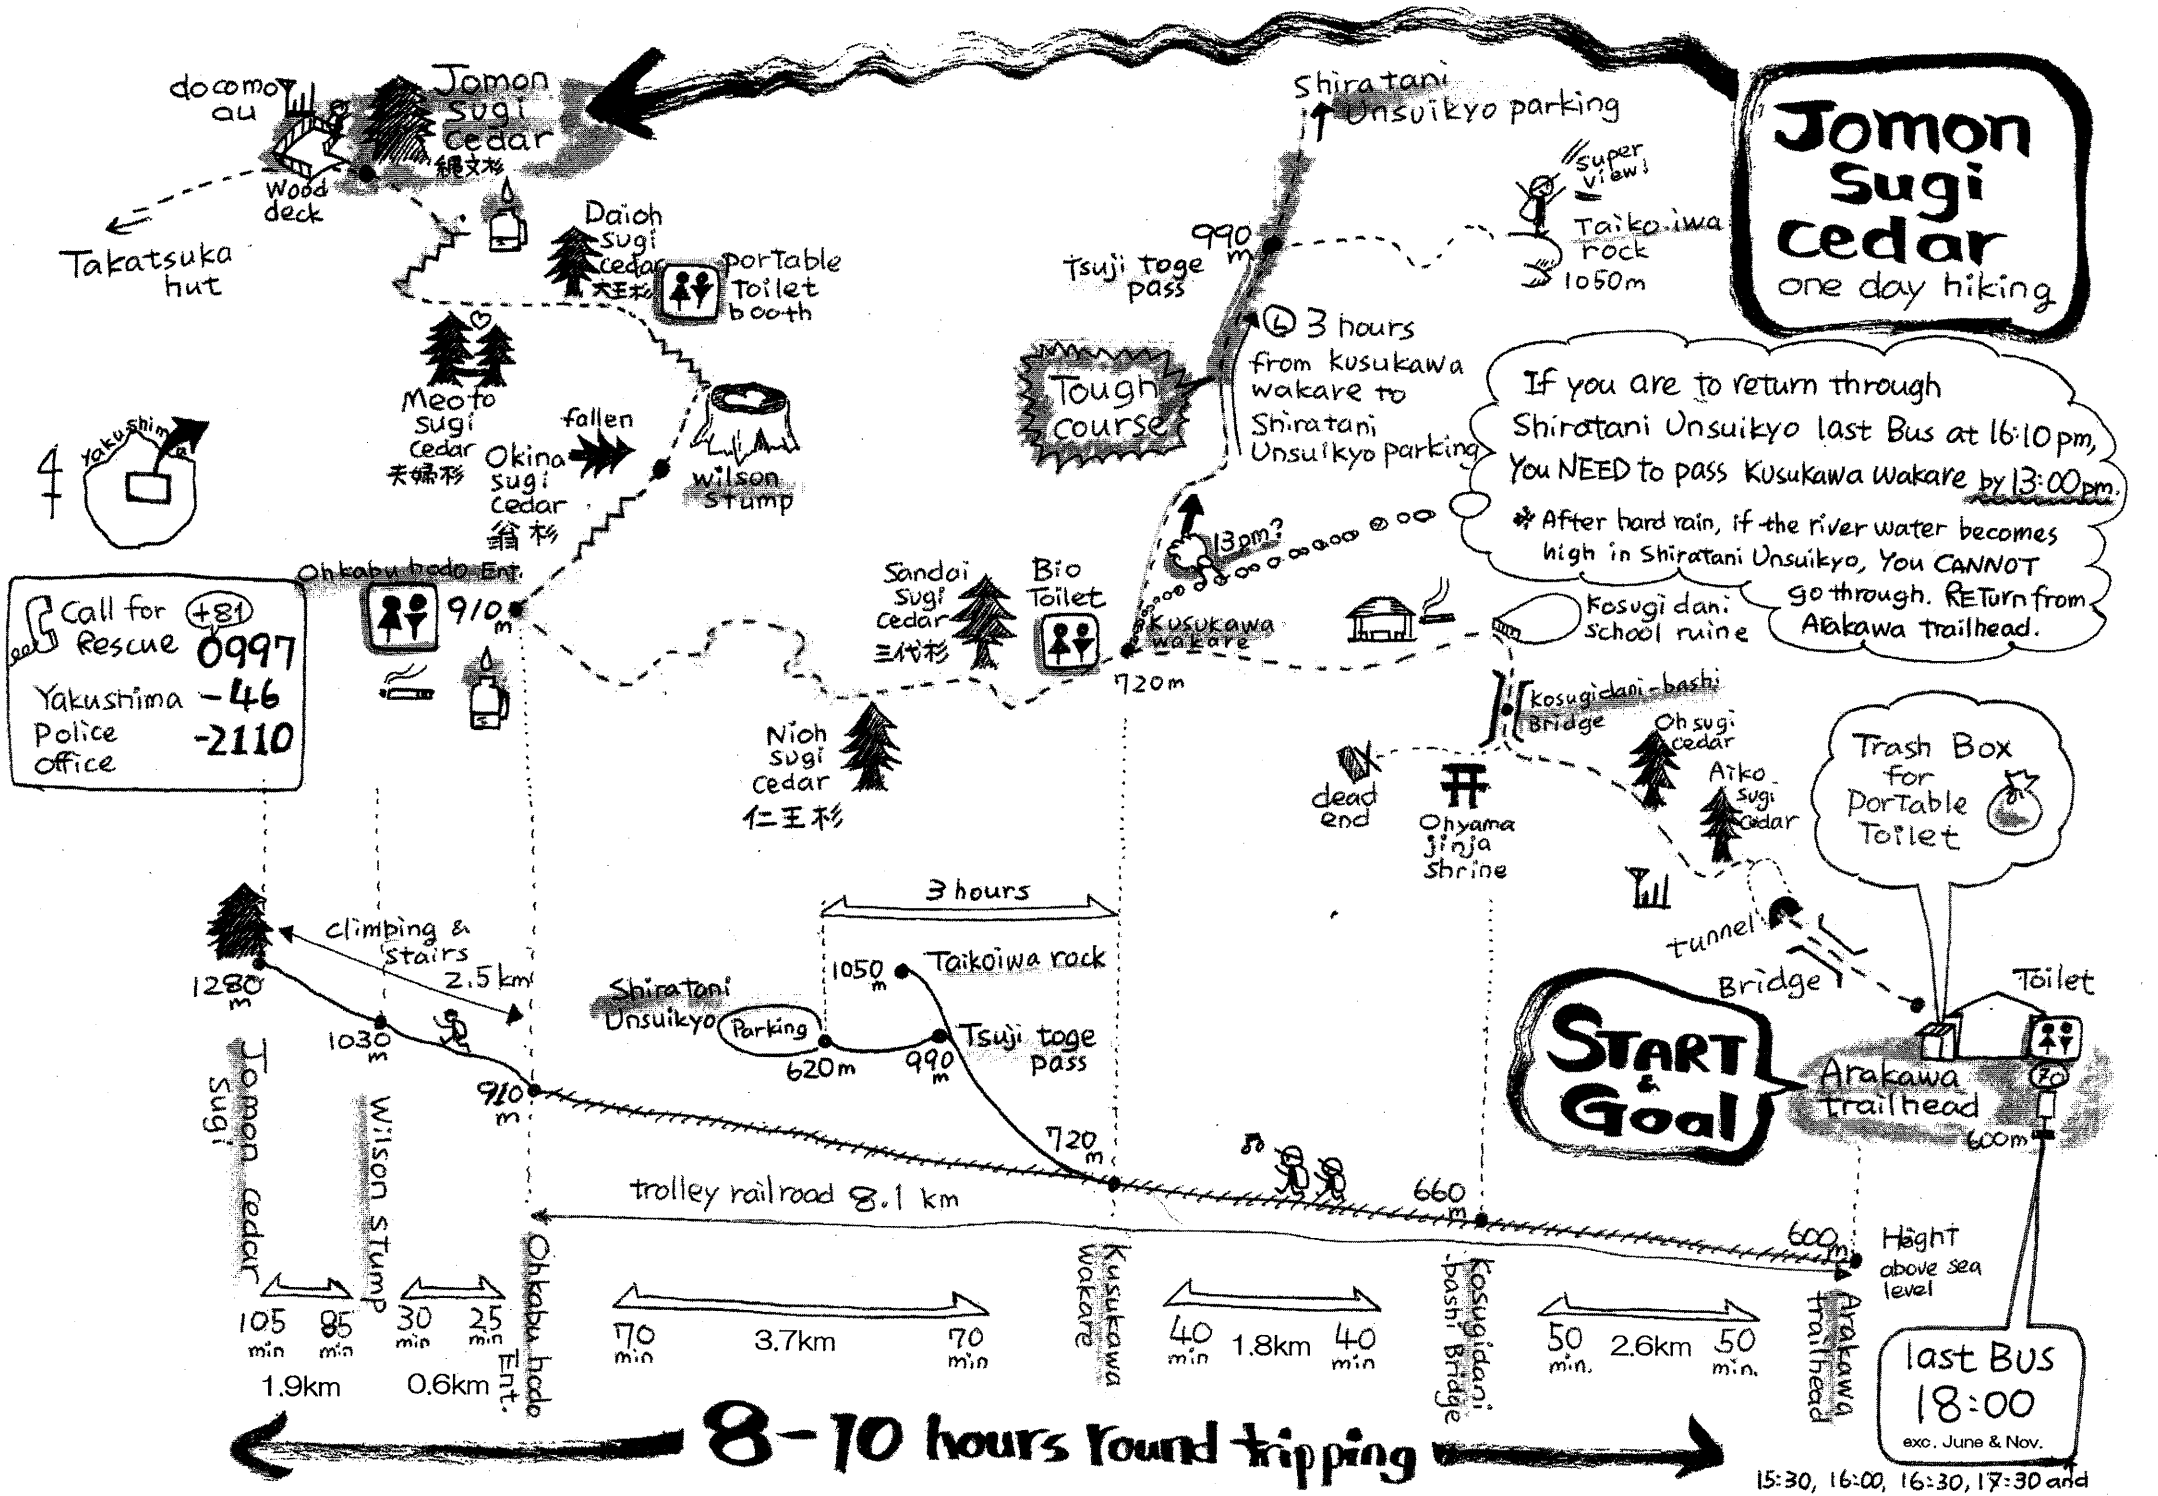 Jomon
Sugi
Cedar
one day hiking
docomo
au
Jomon
Sugi
Cedar
縄文杉
Wood
deck
Takatsuka
hut
Daioh
sugi
cedar
大王杉
portable
Toilet
booth
Meoto
sugi
cedar
夫婦杉
fallen
Okina
sugi
cedar
翁杉
wilson
stump
Yakushima
4
Ohkabu hodo Ent.
910
m
Call for
Rescue
+81
0997
Yakushima
-46
Police
office
-2110
Shiratani
Unsuikyo parking
super
view!
Taiko-iwa
rock
1050m
990
m
Tsuji toge
pass
3 hours
from Kusukawa
wakare to
Shiratani
Unsuikyo parking
Tough
course
If you are to return through
Shiratani Unsuikyo last Bus at 16:10 pm,
You NEED to pass Kusukawa wakare by 13:00pm.
※ After hard rain, if the river water becomes
high in Shiratani Unsuikyo, You CANNOT
go through. RETurn from
Arakawa Trailhead.
13pm?
Sandai
sugi
cedar
三代杉
Bio
Toilet
Kusukawa
wakare
720m
Nioh
sugi
cedar
仁王杉
Kosugidani
school ruine
Kosugidani-bashi
Bridge
Ohsugi
cedar
Aiko
sugi
cedar
dead
end
Ohyama
jinja
shrine
Trash Box
for
portable
Toilet
tunnel
Bridge
Toilet
START
&
Goal
Arakawa
trailhead
600m
3 hours
1050
m
Taikoiwa rock
Shiratani
Unsuikyo
Parking
620m
990
m
Tsuji toge
pass
climbing &
stairs
2.5km
1280
m
1030
m
910
m
720
m
660
m
600
m
trolley railroad 8.1 km
Height
above sea
level
Jomon cedar
Sugi
Wilson stump
Ohkabu hodo
Ent.
Kusukawa
wakare
Kosugidani
-bashi Bridge
Arakawa
trailhead
105
min
85
min
1.9km
30
min
25
min
0.6km
70
min
3.7km
70
min
40
min
1.8km
40
min
50
min.
2.6km
50
min.
8-10 hours round tripping
last BUS
18:00
exc. June & Nov.
15:30, 16:00, 16:30, 17:30 and